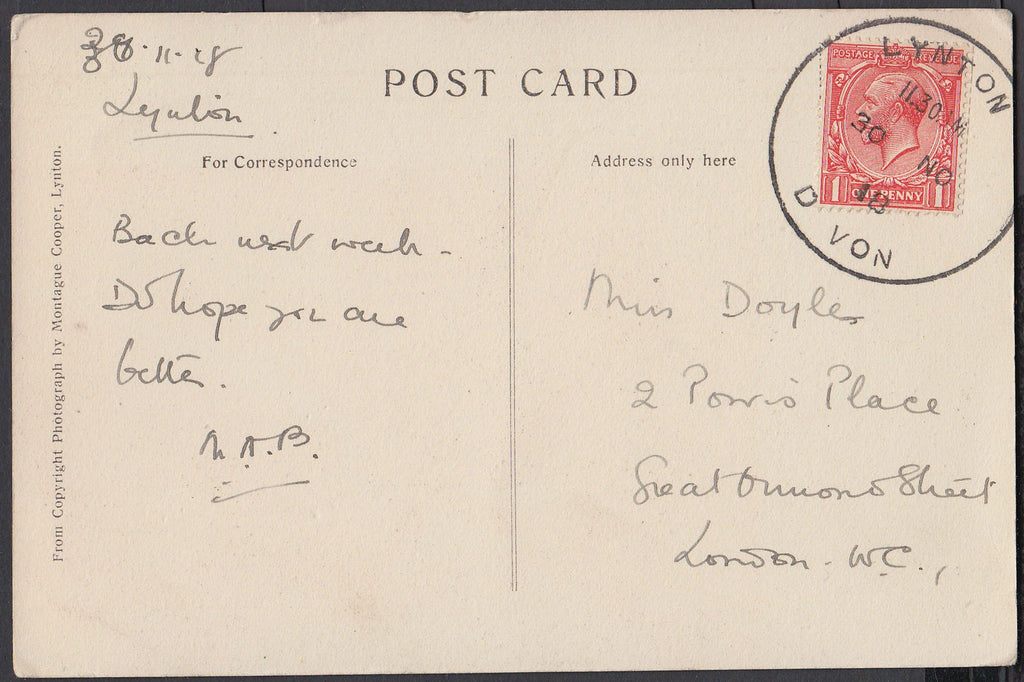 30·11·18
Lynton
POST CARD
For Correspondence
Address only here
From Copyright Photograph by Montague Cooper, Lynton.
Back next week -
Do hope you are
better.
M.A.B.
POSTAGE REVENUE
1 ONE PENNY 1
LYNTON
11.30 AM
30 NO
18
D VON
Miss Doyle
2 Powis Place
Great Ormond Street
London. W.C.,